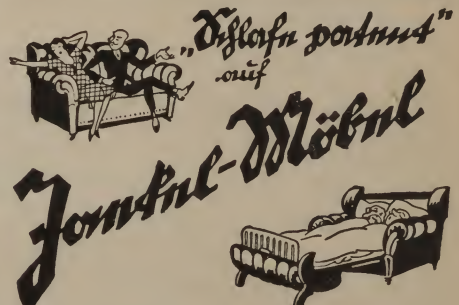 „Schlafe patent"
auf
Jankel-Möbel